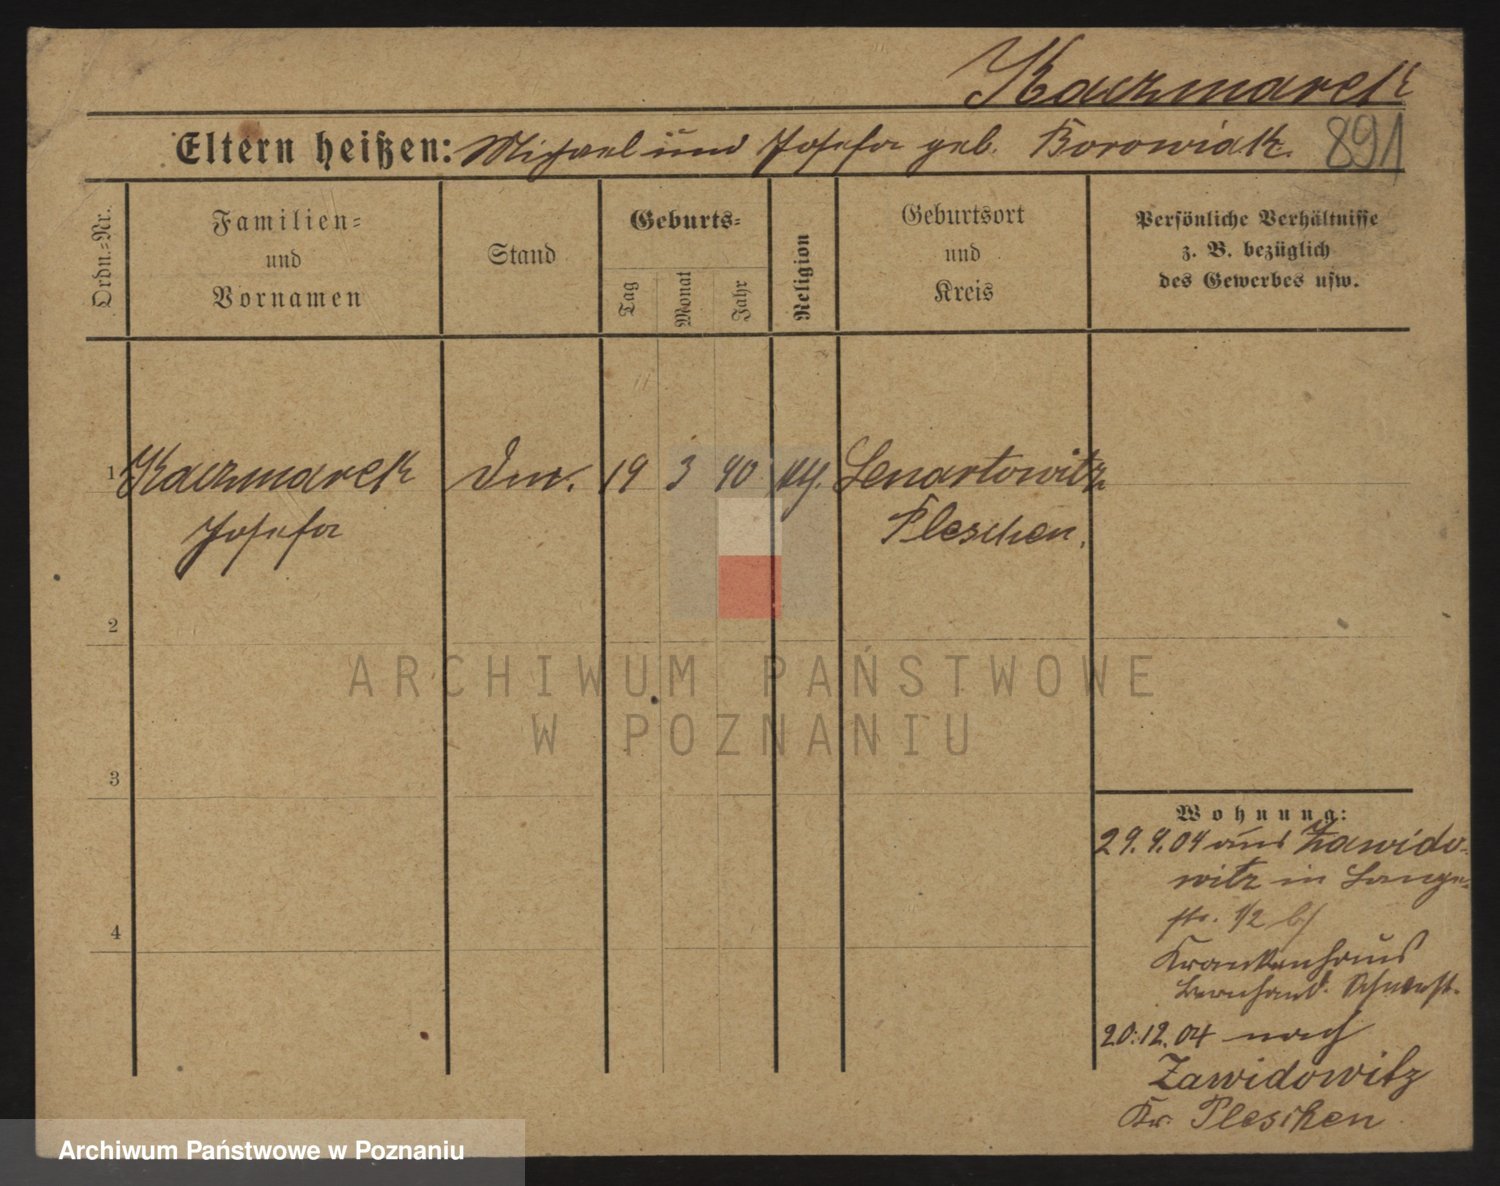 Kaczmarek
Eltern heißen: Michael und Josefa geb. Borowiak.
891
Ordn.-Nr.
Familien-
und
Vornamen
Stand
Geburts-
Tag
Monat
Jahr
Religion
Geburtsort
und
Kreis
Persönliche Verhältnisse
z. B. bezüglich
des Gewerbes usw.
1 Kaczmarek 19 3 90 Lenartowitz
Josefa Pleschen.
2
ARCHIWUM PAŃSTWOWE
W POZNANIU
3
Wohnung:
29.9.04 aus Zawido-
witz in Lange-
str. 1/2 b/
Krankenhaus
4
20.12.04 nach
Zawidowitz
Kr. Pleschen
Archiwum Państwowe w Poznaniu